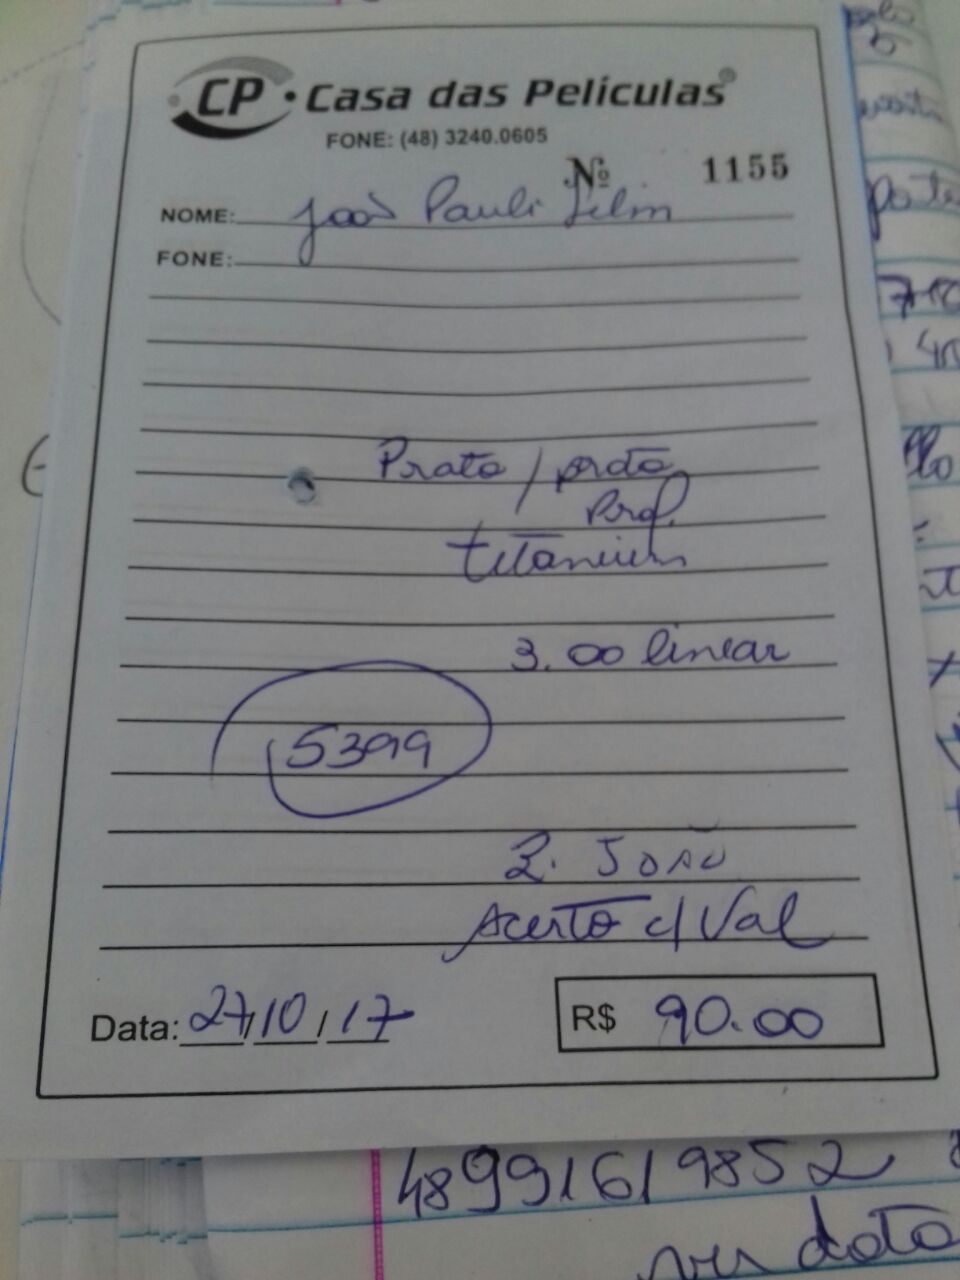 CP • Casa das Películas®
FONE: (48) 3240.0605
Nº 1155
NOME: João Pauli
FONE:
Prata / prata
Prof.
titanium
3.00 linear
5399
2. João
Acerto c/ Val
Data: 27/10/17
R$ 90.00
48991619852
data